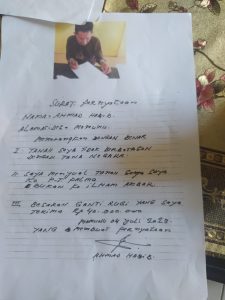 SURAT PERNYATAAN
NAMA : AHMAD HABIB.
ALAMAT : DS.
MENERANGKAN DENGAN BENAR
I. TANAH SAYA TIDAK BERBATASAN
DENGAN TANA NEGARA
II. SAYA MENJUAL TANAH SAYA
KE P.T PALMA
BUKAN KE ILHAM AKBAR.
III. BESARAN GANTI RUGI YANG SAYA
TERIMA Rp 40.000.000
04 JULI
YANG MEMBUAT PERNYATAAN
AHMAD HABIB.